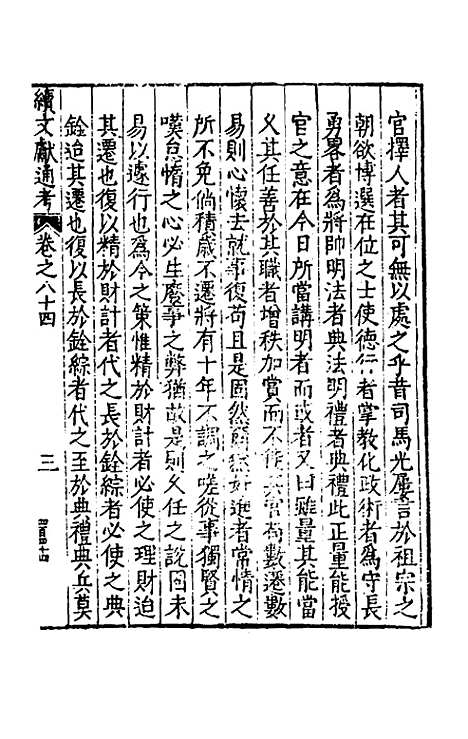 官擇人者其可無以處之乎昔司馬光屢言於祖宗之
朝欲博選在位之士使德行者掌教化政術者為守長
勇畧者為將帥明法者典法明禮者典禮此正量能授
官之意在今日所當講明者而或者又曰雖量其能當
久其任善於其職者增秩加賞而不徙其官苟數遷數
易則心懷去就事復苟且是固然 好進者常情之
所不免倘積歲不遷將有十年不調之嗟從事獨賢之
嘆怠惰之心必生廢事之弊猶故是則久任之說固未
易以遽行也為今之策惟精於財計者必使之理財迨
其遷也復以精於財計者代之長於銓綜者必使之典
銓迨其遷也復以長於銓綜者代之至於典禮典兵莫
續文獻通考 卷之八十四
三